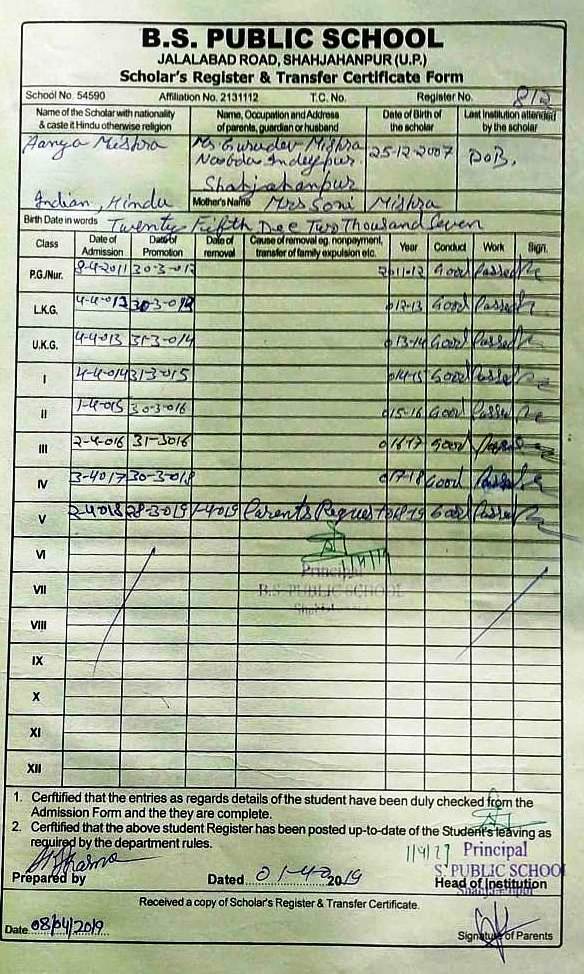 B.S. PUBLIC SCHOOL
JALALABAD ROAD, SHAHJAHANPUR (U.P.)
Scholar's Register & Transfer Certificate Form
School No. 54590 Affiliation No. 2131112 T.C. No. Register No. 812
Name of the Scholar with nationality & caste it Hindu otherwise religion
Name, Occupation and Address of parents, guardian or husband
Date of Birth of the scholar
Last Institution attended by the scholar
Aanya Mishra
Indian, Hindu
Mr Gurudev Mishra
Shahjahanpur
25-12-2007
DOB.
Mother's Name Mrs Soni Mishra
Birth Date in words Twenty Fifth Dec Two Thousand Seven
Class Date of Admission Date of Promotion Date of removal Cause of removal eg. nonpayment, transfer of family expulsion etc. Year Conduct Work Sign.
P.G/Nur. 8-4-2011 30-3-012 2011-12 Good Passed
L.K.G. 4-4-012 30-3-013 012-13 Good Passed
U.K.G. 4-4-013 31-3-014 013-14 Good Passed
I 4-4-014 31-3-015 014-15 Good Passed
II 1-4-015 30-3-016 015-16 Good Passed
III 2-4-016 31-3016 01617 Good Passed
IV 3-4017 30-3-018 017-18 Good Passed
V 2-4018 28-3-019 1-4019 Parents Request 018-19 Good Passed
VI
Principal
VII
B.S. PUBLIC SCHOOL
VIII
IX
X
XI
XII
1. Cerftified that the entries as regards details of the student have been duly checked from the
Admission Form and the they are complete.
2. Cerftified that the above student Register has been posted up-to-date of the Student's leaving as
required by the department rules.
Principal
S. PUBLIC SCHOOL
Prepared by Dated 01-40 2019 Head of Institution
Received a copy of Scholar's Register & Transfer Certificate.
Date 08/04/2019
Signature of Parents